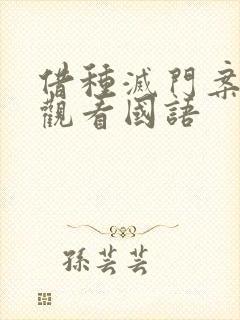 借種滅門案
觀看國語
孫芸芸